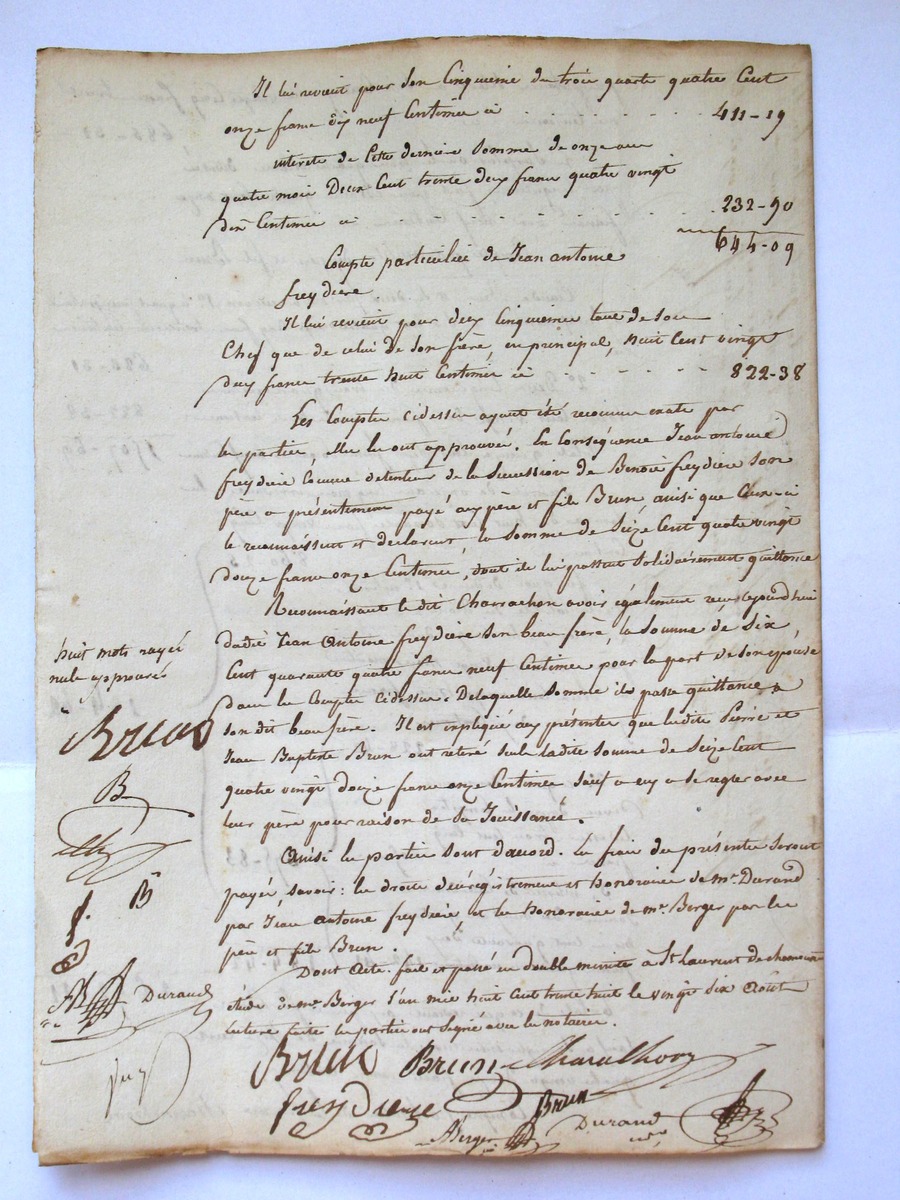 Il lui revient pour son Cinquieme du trois quarts quatre Cent
onze francs dix neuf Centimes ci . . . . . . . . 411-19
interets de Cette derniere Somme de onze ans
quatre mois Deux Cent trente deux francs quatre vingt
dix Centimes ci . . . . . . . . . . 232-90
644-09
Compte particulier de Jean antoine
freydiere
Il lui revient pour deux Cinquiemes tant de son
Chef que de celui de son frère en principal, huit Cent vingt
deux francs trente huit Centimes ci . . . . . . 822-38
Les Comptes cidessus ayant été reconnus exats par
les parties elles les ont approuvés. En Conséquence Jean antoine
freydière Comme detenteur de la Succession de Benoit freydière son
père a présentement payé aux père et fils Brun, ainsi que Ceux-ci
le reconnaissent et declarent, la Somme de Seize Cent quatre vingt
douze francs onze Centimes, dont ils lui passent Solidairement quittance
Reconnaissant ledit Charrachon avoir également reçu aujourd'hui
dudit Jean Antoine freydière Son beau frère, la Somme de Six
Cent quarante quatre francs neuf Centimes pour la part de son épouse
dans les Comptes cidessus. Delaquelle Somme ils passe quittance a
son dit beau frère. Il est expliqué aux présentes que lesdits Pierre et
Jean Baptiste Brun ont retiré Seuls ladite Somme de Seize Cent
quatre vingt Douze francs onze Centimes Sauf a eux a Se regler avec
leur père pour raison de Sa Jouissance.
Ainsi les parties Sont d'accord. Les frais des présentes Seront
payés, Savoir : les droits d'enregistrement et honoraires de Me Durand
par Jean Antoine freydière, et les honoraires de me Berger par les
père et fils Brun.
Dont Acte. fait et passé en double minute à St Laurent de chamousset
étude de me Berger l'an mil huit Cent trente huit le vingt six Août
lecture faite les parties ont Signé avec les notaires.
huit mots rayés
nuls approuvés
Brun
B
Ch
B
f.
AB Durand
Brun Brun Charachon
freydiere Brun
ABerger Durand